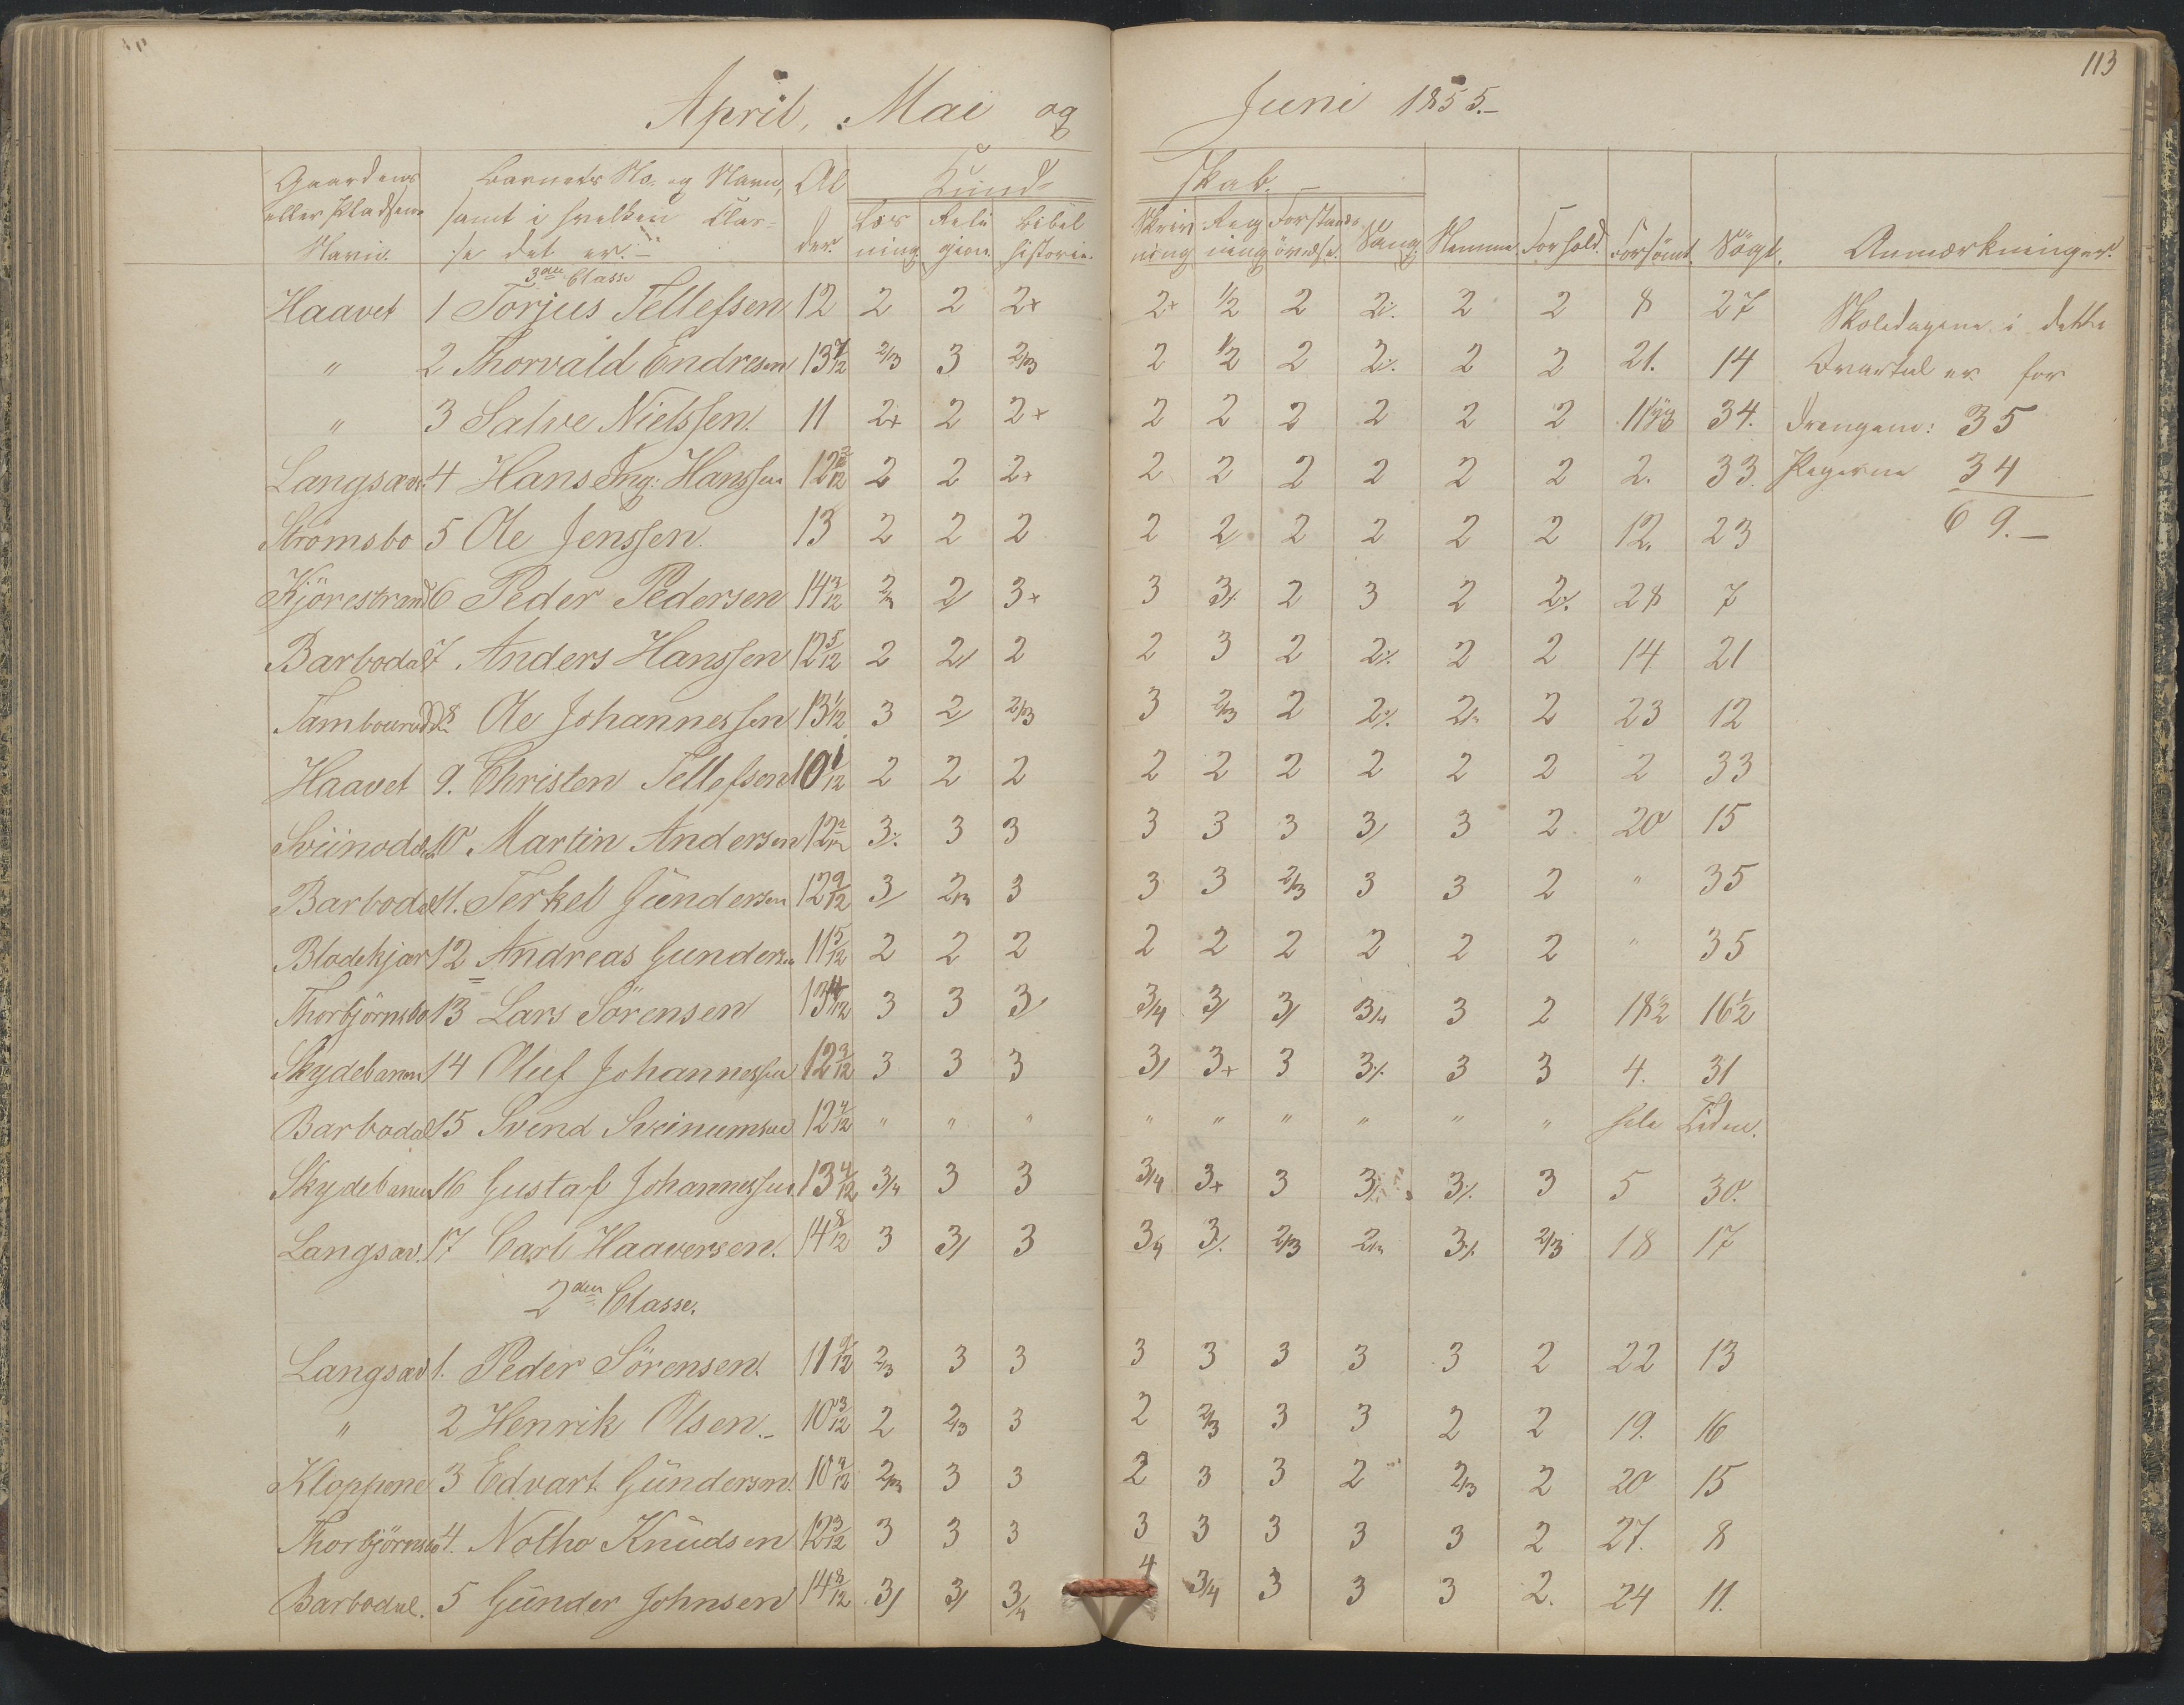 113
April, Mai og Juni 1855.-
Gaardens eller Pladsens Navn. Barnets No. og Navn, samt i hvilken Classe det er.- Alder. Kundskab.- Læsning Religion. Bibelhistorie. Skrivning Regning Forstandsövelse. Sang. Nemme. Forhold. Forsömt. Sögt. Anmærkninger.
3die Classe
Haavet 1 Torjus Tellefsen 12 2 2 2+ 2+ 1/2 2 2% 2 2 8 27 Skoledagene i dette
" 2 Thorvald Endresen 13 7/12 2/3 3 2/3 2 1/2 2 2% 2 2 21. 14 Qvartal er for
" 3 Salve Nielssen. 11 2+ 2 2+ 2 2 2 2 2 2 34. Drengene: 35
Langsæv. 4 Hans Ing: Hanssen 12 2 2 2+ 2 2 2 2 2 2 2. 33. Pigerne 34
Strömsbo 5 Ole Jenssen. 13 2 2 2 2 2 2 2 2 2 12. 23 69.-
Kjörestrand 6 Peder Pedersen 14 3/12 2/3 2/ 3+ 3 3% 2 3 2 2% 28 7
Barbodal 7 Anders Hanssen 12 5/12 2 2/ 2 2 3 2 2% 2 2 14 21
8 Ole Johannessen 13 1/12 3 2/ 2/3 3 2/3 2 2% 2/3 2 23 12
Haavet 9. Christen Tellefsen 10 1/12 2 2 2 2 2 2 2 2 2 2 33
10 Martin Andersen 12 3% 3 3 3 3 3 3/ 3 2 20 15
Barbodal 11. Terkel Gundersen 12 9/12 3/ 2/3 3 3 3 2/3 3 3 2 " 35
Blødekjær 12 Andreas Gundersen 11 5/12 2 2 2 2 2 2 2 2 2 " 35
Thorbjörnsbo 13 Lars Sörensen 13 4/12 3 3 3/ 3/4 3/ 3/ 3/4 3 2 18 1/2 16 1/2
Skydebanen 14 Oluf Johannessen 12 3/12 3 3 3 3/ 3+ 3 3% 3 3 4. 31
Barbodal 15 Svend Sveinumsen 12 4/12 " " " " " " " " " hele Tiden.
Skydebanen 16 Gustaf Johannessen. 13 4/12 3/4 3 3 3/4 3+ 3 3% 3% 3 5 30.
Langsæv. 17 Carl Haaversen. 14 8/12 3 3/ 3 3/4 3% 2/3 2/3 3% 2/3 18 17
2den Classe.
Langsæv 1. Peder Sörensen. 11 9/12 2/3 3 3 3 3 3 3 3 2 22 13
" 2 Henrik Olsen.- 10 3/12 2 2/3 3 2 2/3 3 3 2 2 19. 16
Kloppene 3 Edvart Gundersen. 10 2/3 3 3 2 3 3 2 2/3 2 20 15
Thorbjörnsbo 4. Notho Knudsen 12 3/12 3 3 3 3 3 3 3 3 2 27. 8
Barbodal. 5 Gunder Johnsen 14 8/12 3/ 3/ 3/4 4 3/4 3 3 3 2. 24 11.